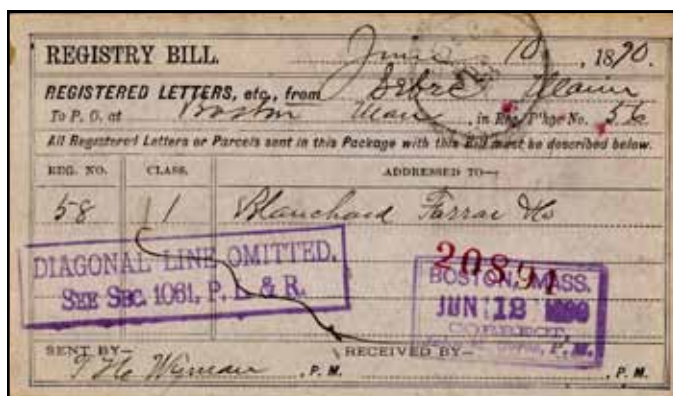 REGISTRY BILL. June 10, 1890.
REGISTERED LETTERS, etc., from Maine
To P. O. at Boston , in Reg. P'kge No. 56
All Registered Letters or Parcels sent in this Package with this Bill must be described below.
REG. NO. CLASS. ADDRESSED TO—
58 1 Blanchard Farrar
20894
DIAGONAL LINE OMITTED.
SEE SEC. 1081, P. L. & R.
BOSTON, MASS.
JUN 12 1890
CORRECT.
P. M.
SENT BY— RECEIVED BY—
Wyman , P. M. , P. M.